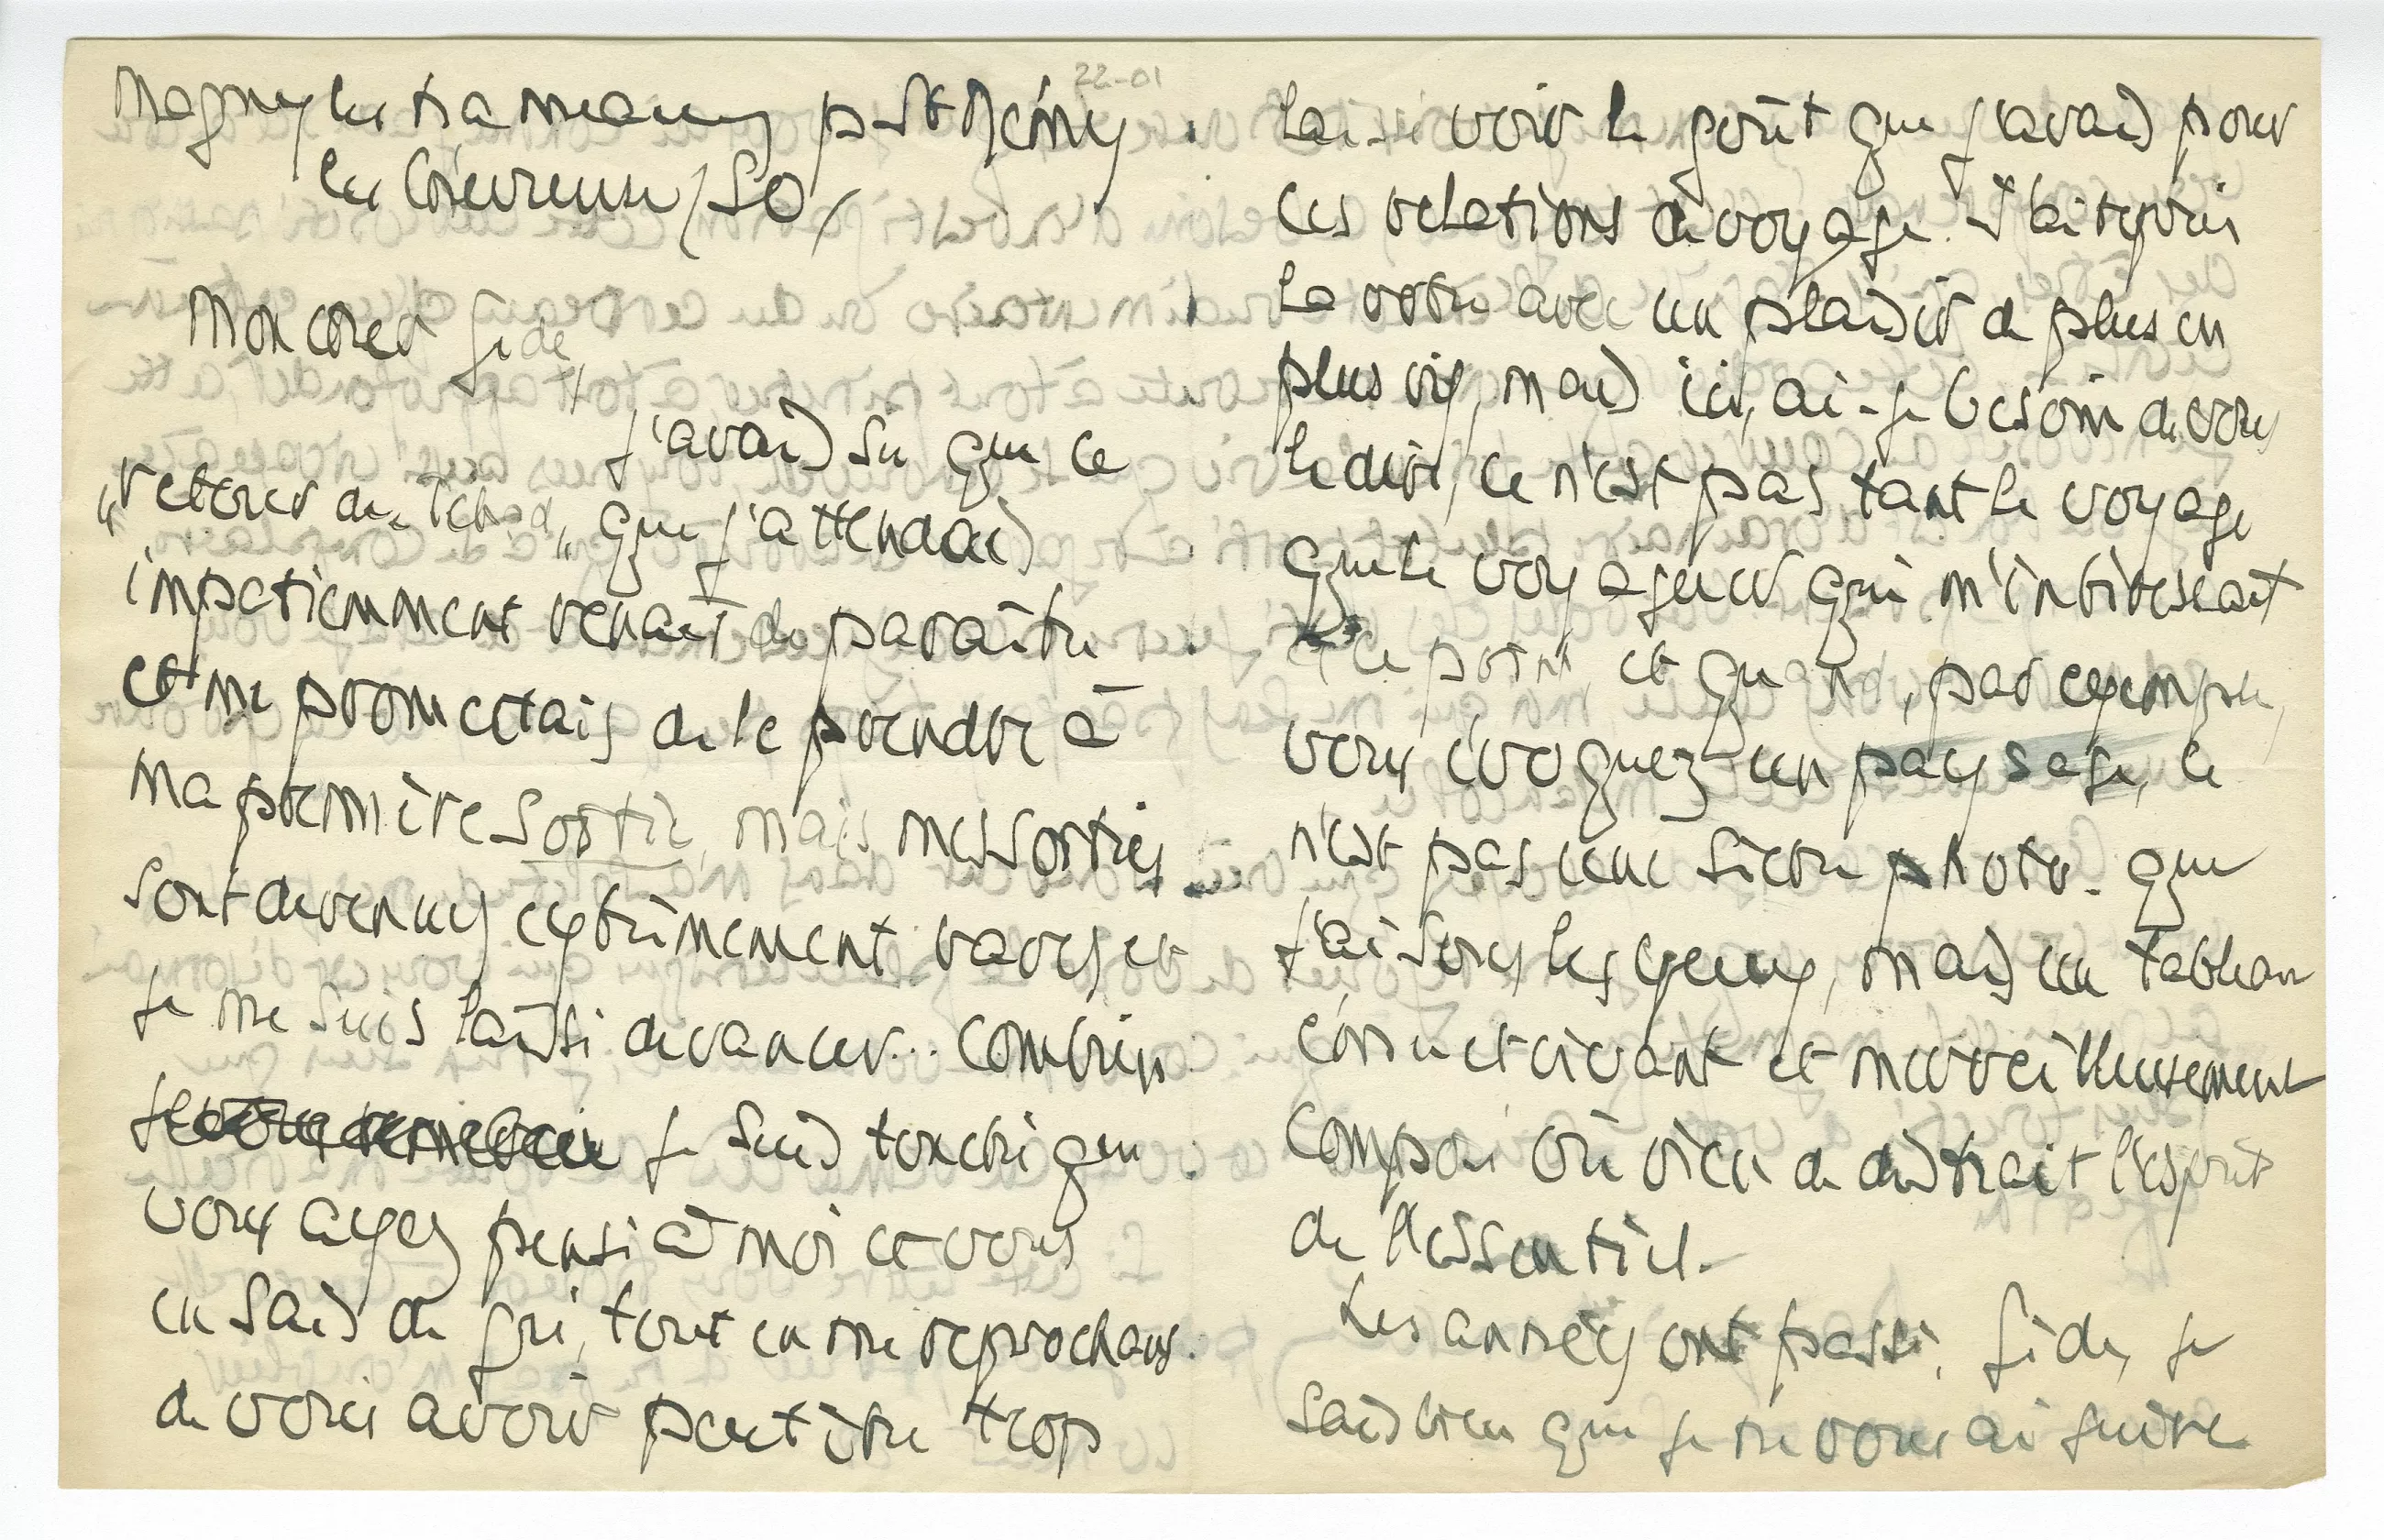 22-01
Magny les Hameaux p. St Rémy
les Chevreuse / SO /
Mon cher Gide,
j'avais su que ce
"retour du Tchad" que j'attendais
impatiemment venait de paraître
et me promettais de le prendre à
ma première sortie, mais mes sorties
sont devenues extrêmement rares et
je me suis laissé devancer... Combien
je suis touché que
vous ayez pensé à moi et vous
en sais de gré, tout en me reprochant
de vous avoir peut être trop
laissé voir le goût que j'avais pour
les relations de voyage. J'ai repris
la votre avec un plaisir de plus en
plus vif, mais ici, ai-je besoin de vous
le dire, ce n'est pas tant le voyage
que le voyageur qui m'intéressait
à ce point, et quand, par exemple,
vous évoquez un paysage, ce
n'est pas une sèche photo. que
j'ai sous les yeux, mais un tableau
construit vivant et merveilleusement
composé où rien ne distrait l'esprit
de l'essentiel.
Les années ont passé, Gide, je
sais bien que je ne vous ai guère